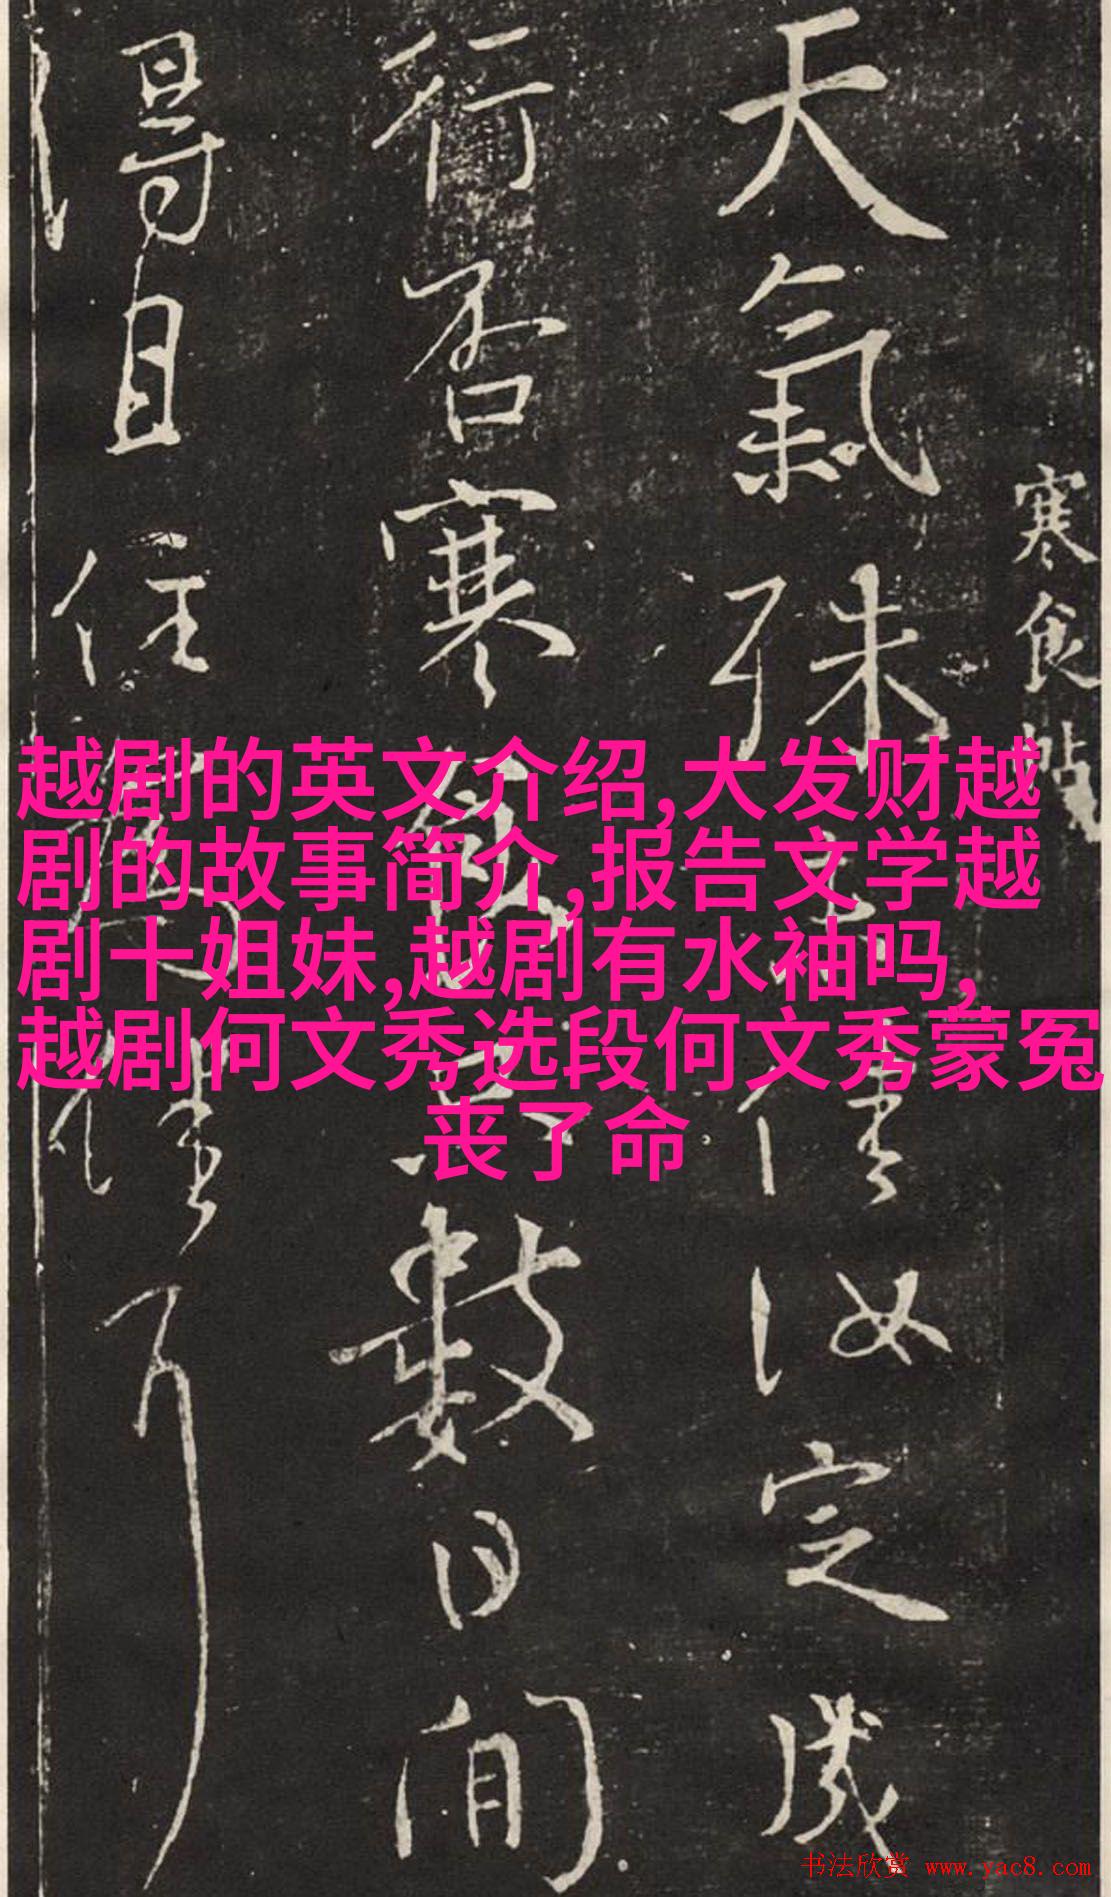 寒食帖
天氣殊未佳汝定成
行否寒食只數日間
得且住為佳耳
越剧的英文介绍,大发财越
剧的故事简介,报告文学越
剧十姐妹,越剧有水袖吗,
越剧何文秀选段何文秀蒙冤
丧了命
书法欣赏 www.yac8.com